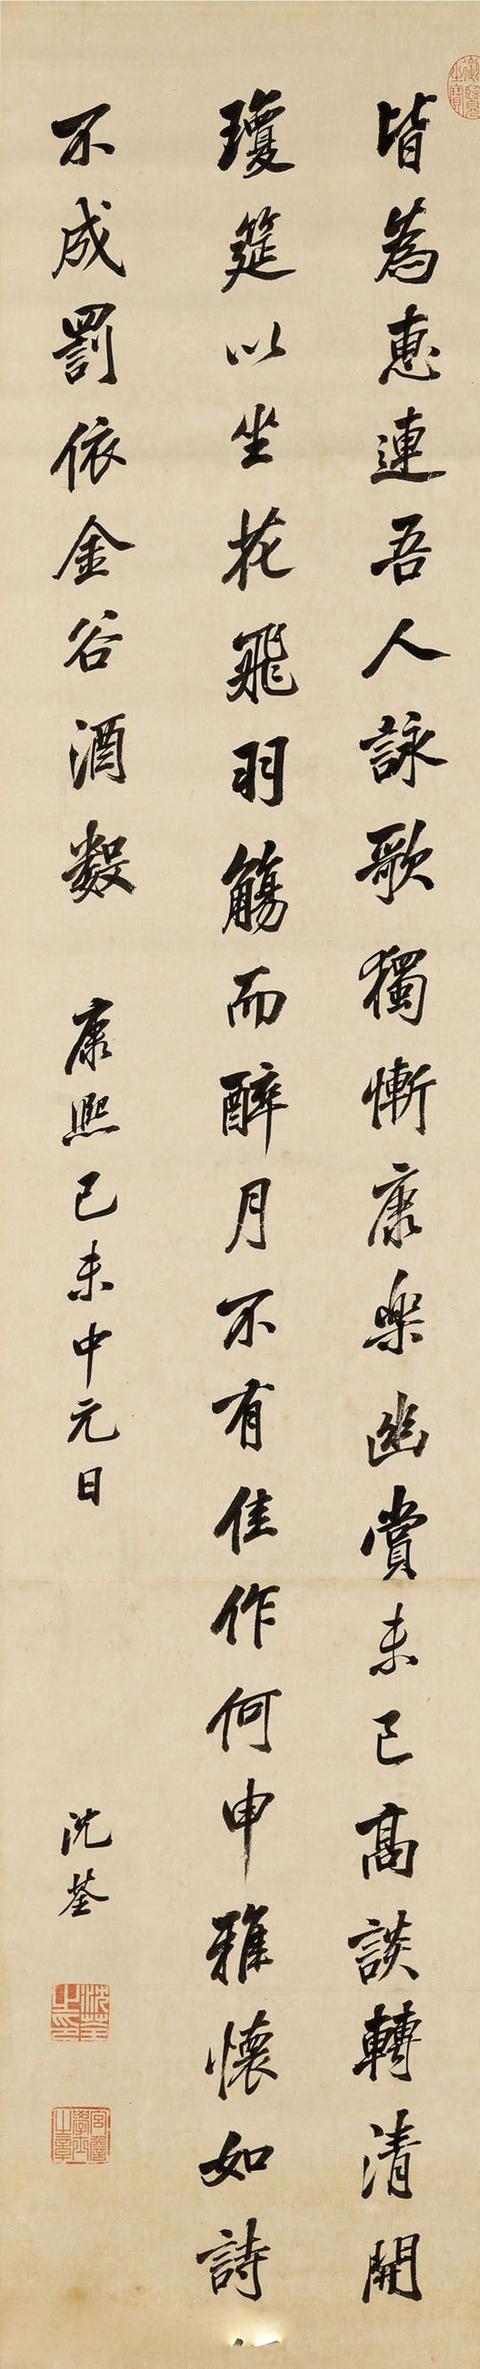 皆為惠連吾人詠歌獨慚康樂幽賞未已高談轉清開
瓊筵以坐花飛羽觴而醉月不有佳作何申雅懷如詩
不成罰依金谷酒數　康熙己未中元日
沈荃
沈荃之印